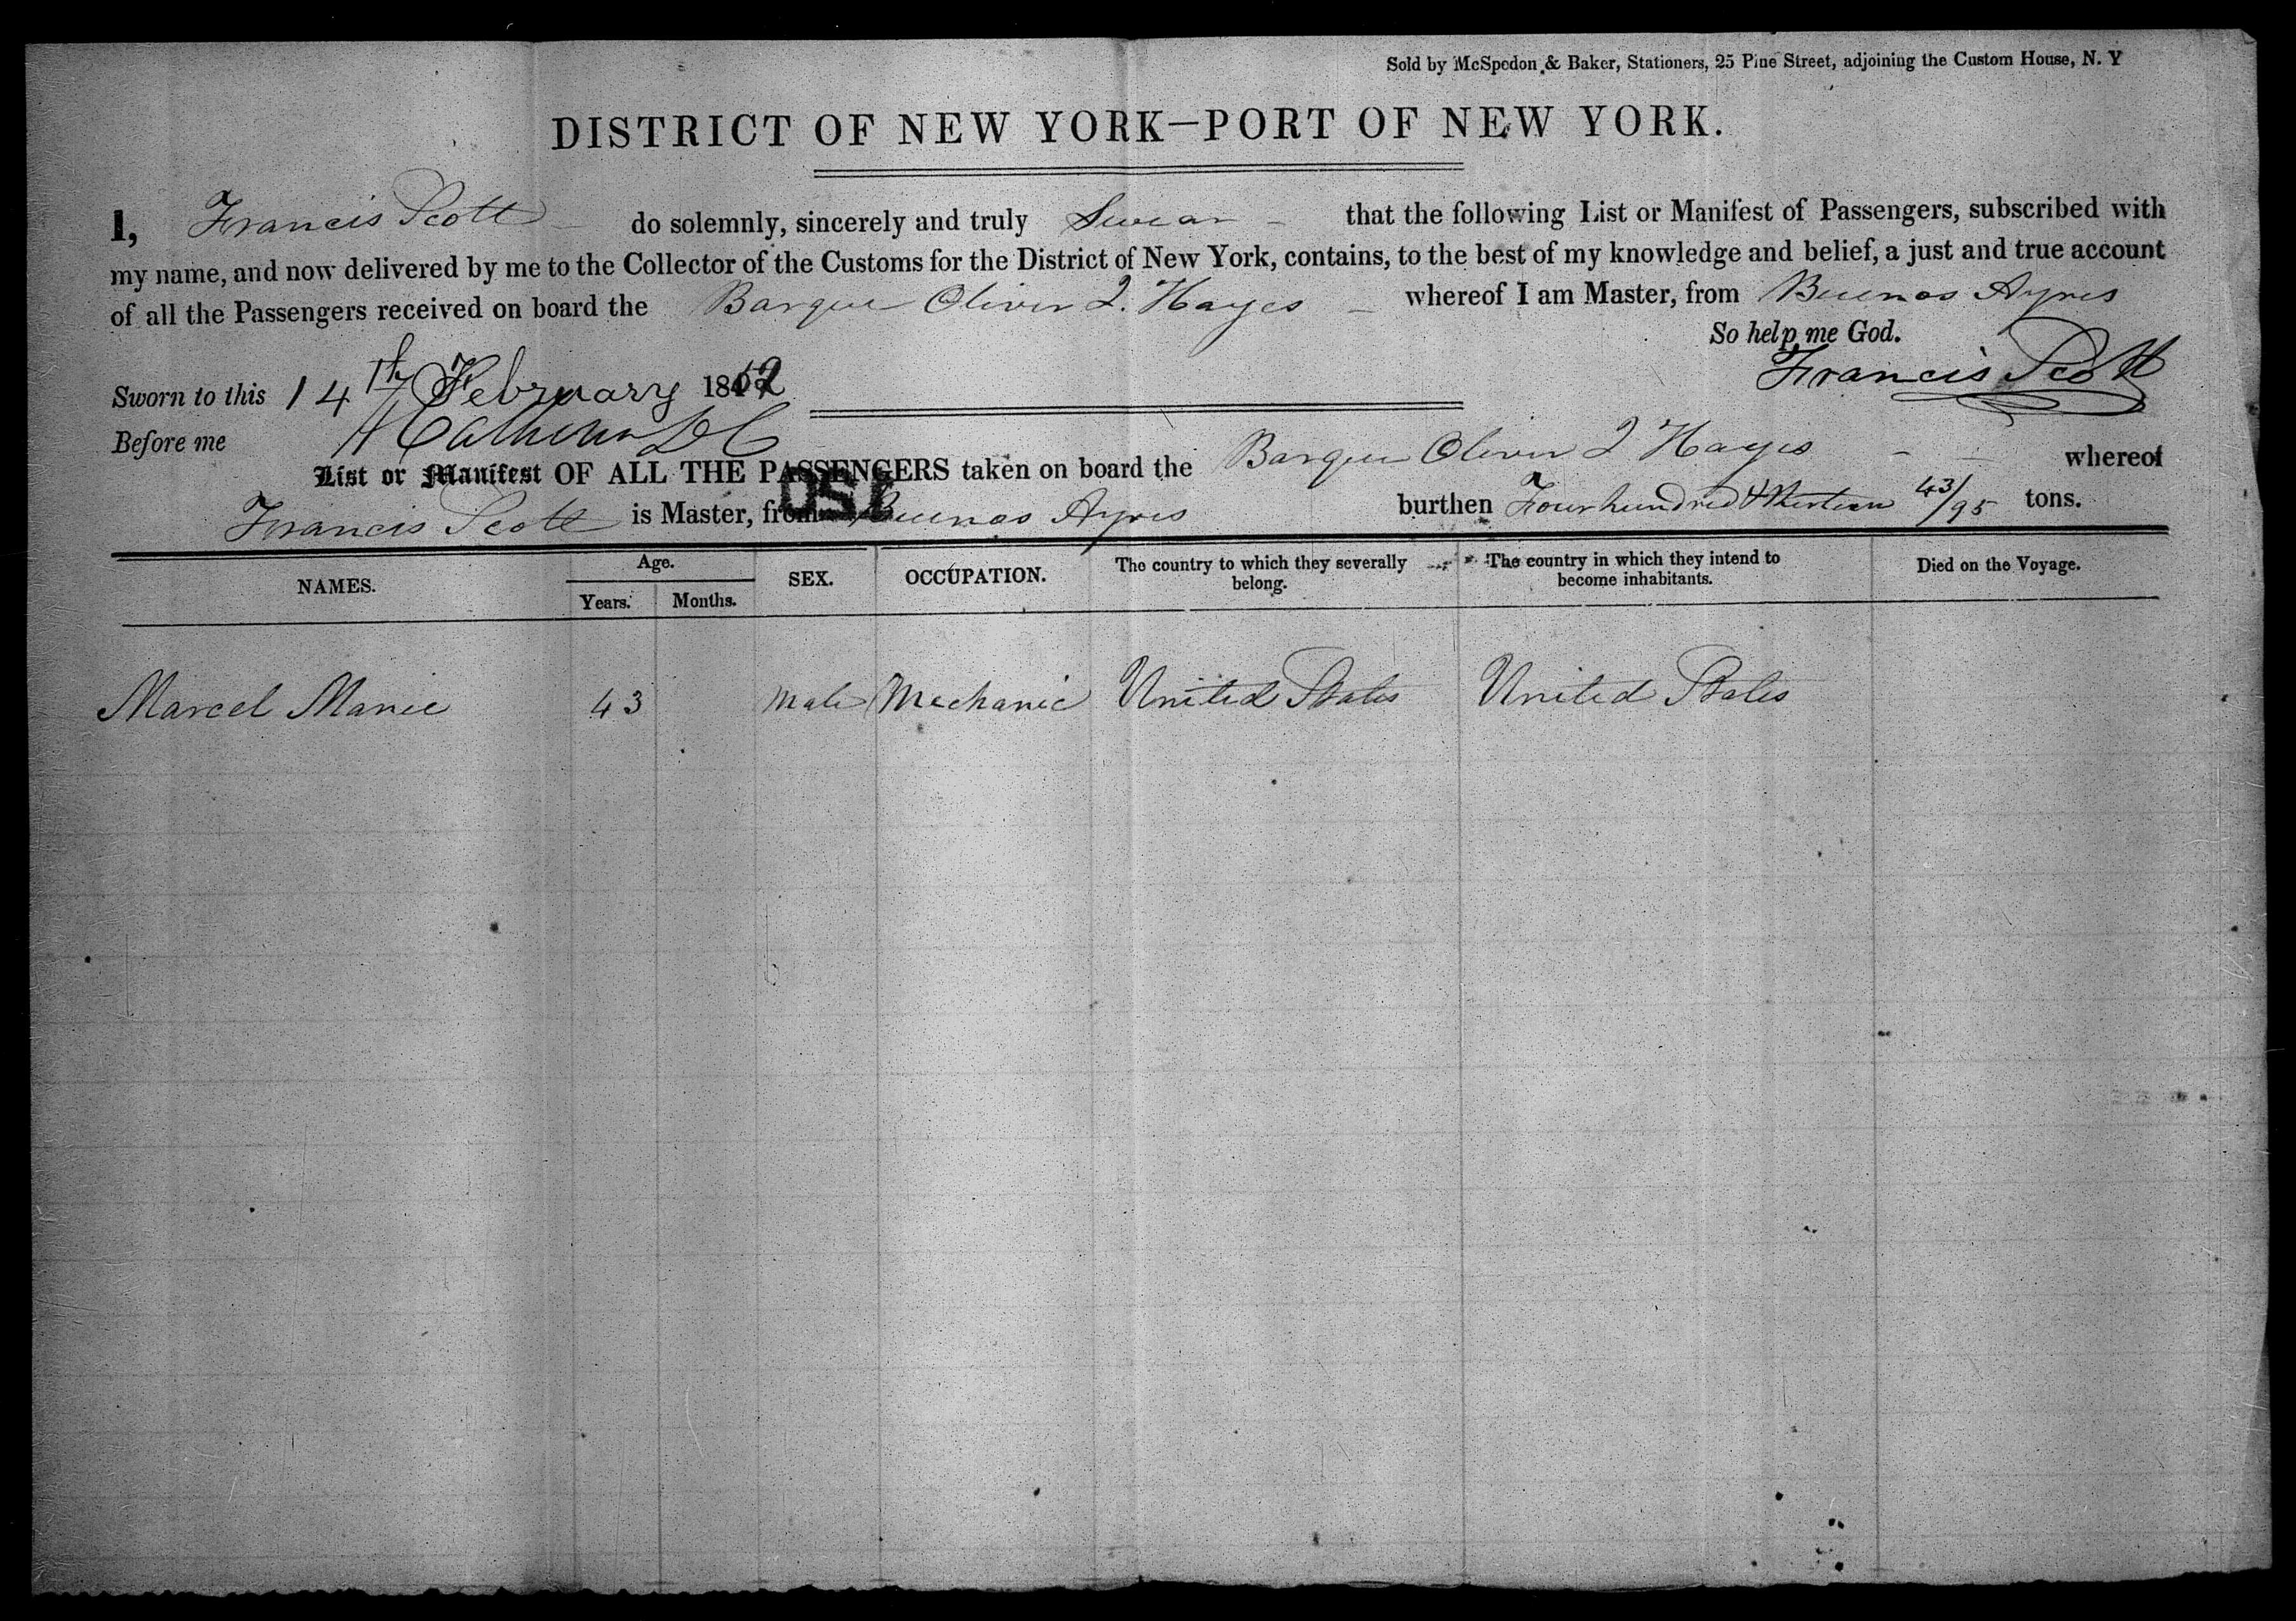 Sold by McSpedon & Baker, Stationers, 25 Pine Street, adjoining the Custom House, N. Y
DISTRICT OF NEW YORK—PORT OF NEW YORK.
I, Francis Scott do solemnly, sincerely and truly Swear that the following List or Manifest of Passengers, subscribed with
my name, and now delivered by me to the Collector of the Customs for the District of New York, contains, to the best of my knowledge and belief, a just and true account
of all the Passengers received on board the Barque Oliver J. Hayes whereof I am Master, from Buenos Ayres
So help me God.
Sworn to this 14th February 1852 Francis Scott
Before me
List or Manifest OF ALL THE PASSENGERS taken on board the Barque Oliver J Hayes whereof
Francis Scott is Master, from Buenos Ayres burthen Four hundred & thirteen 43/95 tons.
150
NAMES. Age. SEX. OCCUPATION. The country to which they severally belong. The country in which they intend to become inhabitants. Died on the Voyage.
Years. Months.
Marcel Marie 43 Male Mechanic United States United States